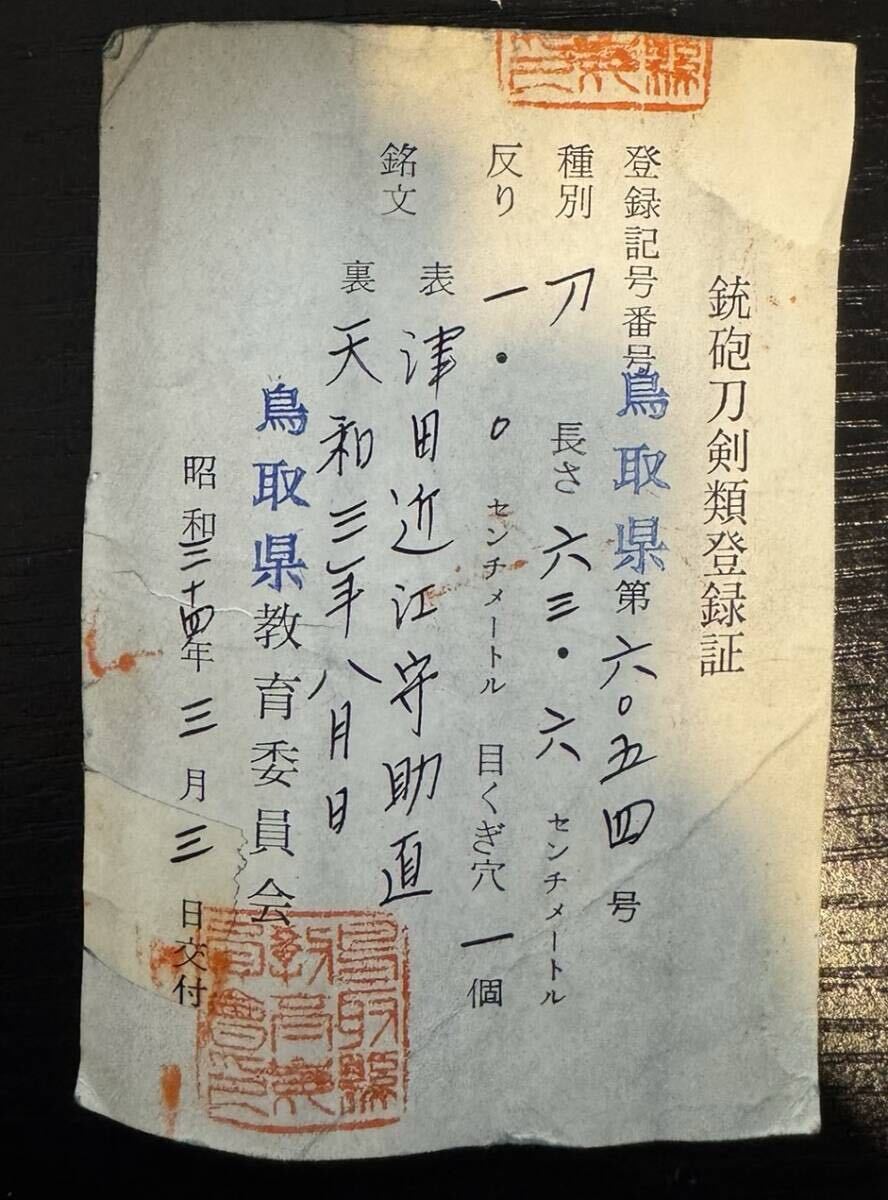 銃砲刀剣類登録証
登録記号番号 鳥取県 第 六〇五四 号
種別 刀 長さ 六三・六 センチメートル
反り 一・〇 センチメートル 目くぎ穴 一 個
銘文 表 津田近江守助直
裏 天和三年八月日
鳥取県教育委員会
昭和三十四年 三 月 三 日交付
鳥取縣
教育委
員會之印